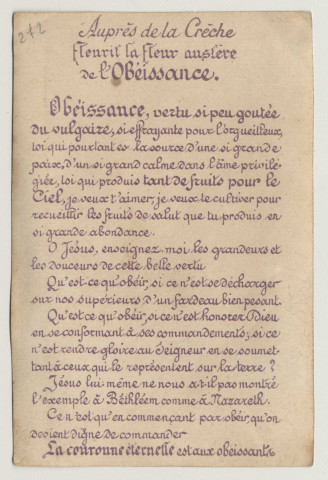 212
Auprès de la Crèche
fleurit la fleur austère
de l'Obéissance.
Obéissance, vertu si peu goutée
du vulgaire, si effrayante pour l'orgueilleux,
toi qui pourtant es la source d'une si grande
paix, d'un si grand calme dans l'âme privilé-
giée, toi qui produis tant de fruits pour le
Ciel, je veux t'aimer, je veux te cultiver pour
recueillir les fruits de salut que tu produis en
si grande abondance.
O Jésus, enseignez moi les grandeurs et
les douceurs de cette belle vertu
Qu'est-ce qu'obéir, si ce n'est se décharger
sur nos supérieurs d'un fardeau bien pesant.
Qu'est ce qu'obéir, si ce n'est honorer Dieu
en se conformant à ses commandements, si ce
n'est rendre gloire au Seigneur en se soumet-
tant à ceux qui le représentent sur la terre ?
Jésus lui même ne nous a-t-il pas montré
l'exemple à Bethléem comme à Nazareth.
Ce n'est qu'en commençant par obéir, qu'on
devient digne de commander
La couronne éternelle est aux obéissants